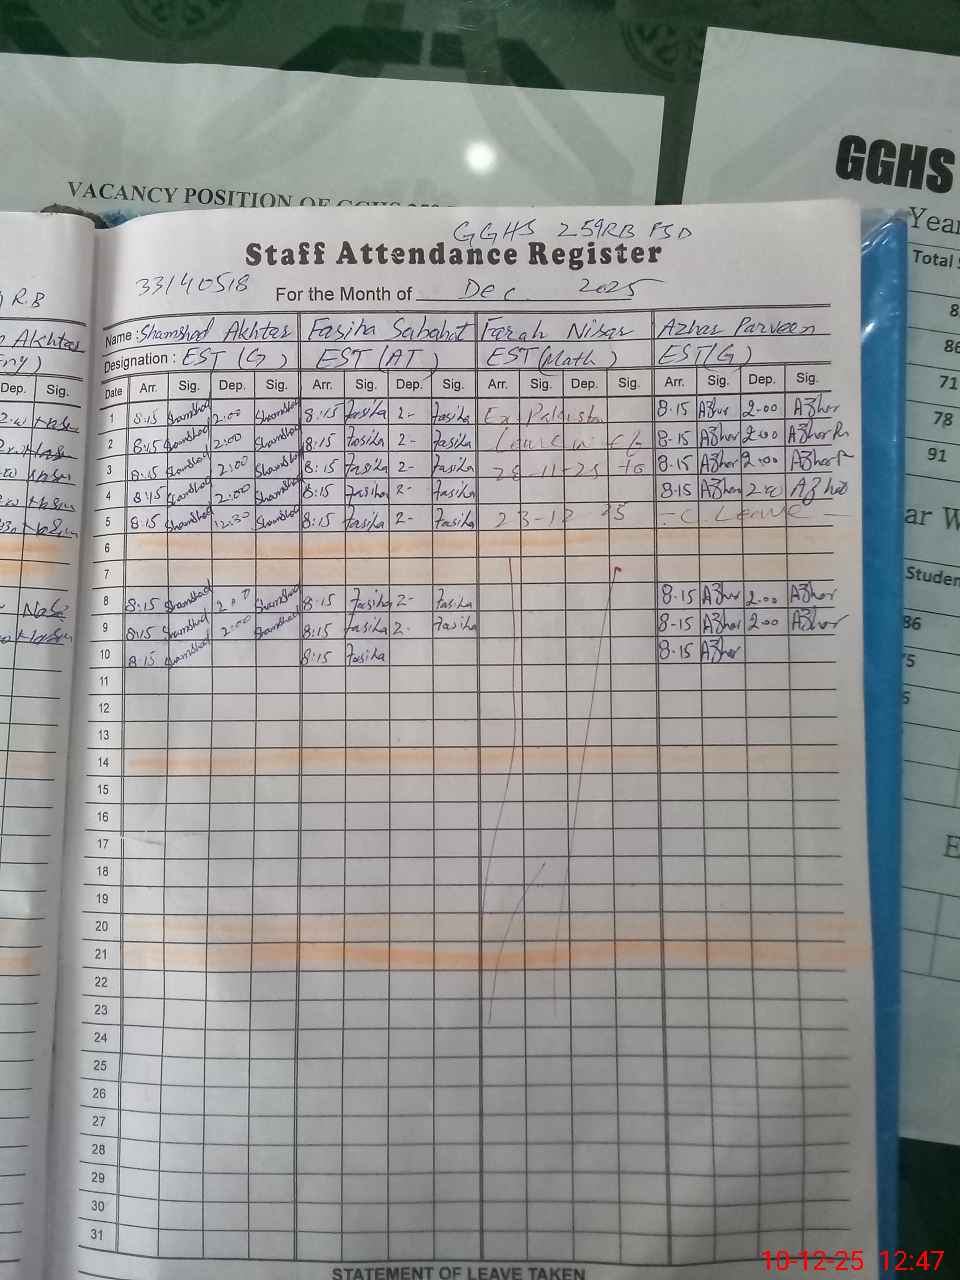 VACANCY POSITION OF GGHS 259
GGHS
Year
Total
GGHS 259RB FSD
Staff Attendance Register
33140518 For the Month of Dec 2025
Name: Shamshad Akhtar Fasiha Sabahat Farah Nisar Azhar Parveen
Designation: EST (G) EST (AT) EST (Math) EST (G)
Date Arr. Sig. Dep. Sig. Arr. Sig. Dep. Sig. Arr. Sig. Dep. Sig. Arr. Sig. Dep. Sig.
1 8:15 Shamshad 2:00 Shamshad 8:15 Fasiha 2- Fasiha Ex Pakistan 8-15 Azhar 2-00 Azhar
2 8:15 Shamshad 2:00 Shamshad 8:15 Fasiha 2- Fasiha Leave w.e.f 8-15 Azhar 2-00 Azhar
3 8:15 Shamshad 2:00 Shamshad 8:15 Fasiha 2- Fasiha 28-11-25 to 8-15 Azhar 2-00 Azhar
4 8:15 Shamshad 2:00 Shamshad 8:15 Fasiha 2- Fasiha 8-15 Azhar 2-00 Azhar
5 8:15 Shamshad 12:30 Shamshad 8:15 Fasiha 2- Fasiha 23-12-25 - C. Leave -
6
7
8 8:15 Shamshad 2:00 Shamshad 8:15 Fasiha 2- Fasiha 8-15 Azhar 2-00 Azhar
9 8:15 Shamshad 2:00 Shamshad 8:15 Fasiha 2- Fasiha 8-15 Azhar 2-00 Azhar
10 8:15 Shamshad 8:15 Fasiha 8-15 Azhar
11
12
13
14
15
16
17
18
19
20
21
22
23
24
25
26
27
28
29
30
31
STATEMENT OF LEAVE TAKEN
R.B
Akhtar
Dep. Sig.
86
71
78
91
Student
10-12-25 12:47